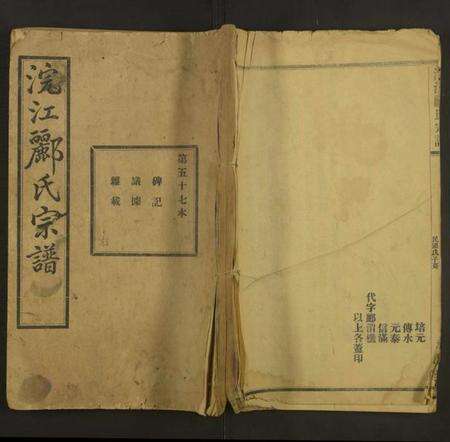 浣江酈氏宗譜
第五十七本
碑記
議據
雜載
民國戊子
培元
傳水
元泰
信滿
以上各蓋印